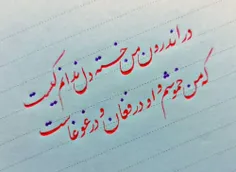 در اندرون من خسته دل ندانم کیست
که من خموشم و او در فغان و در غوغاست